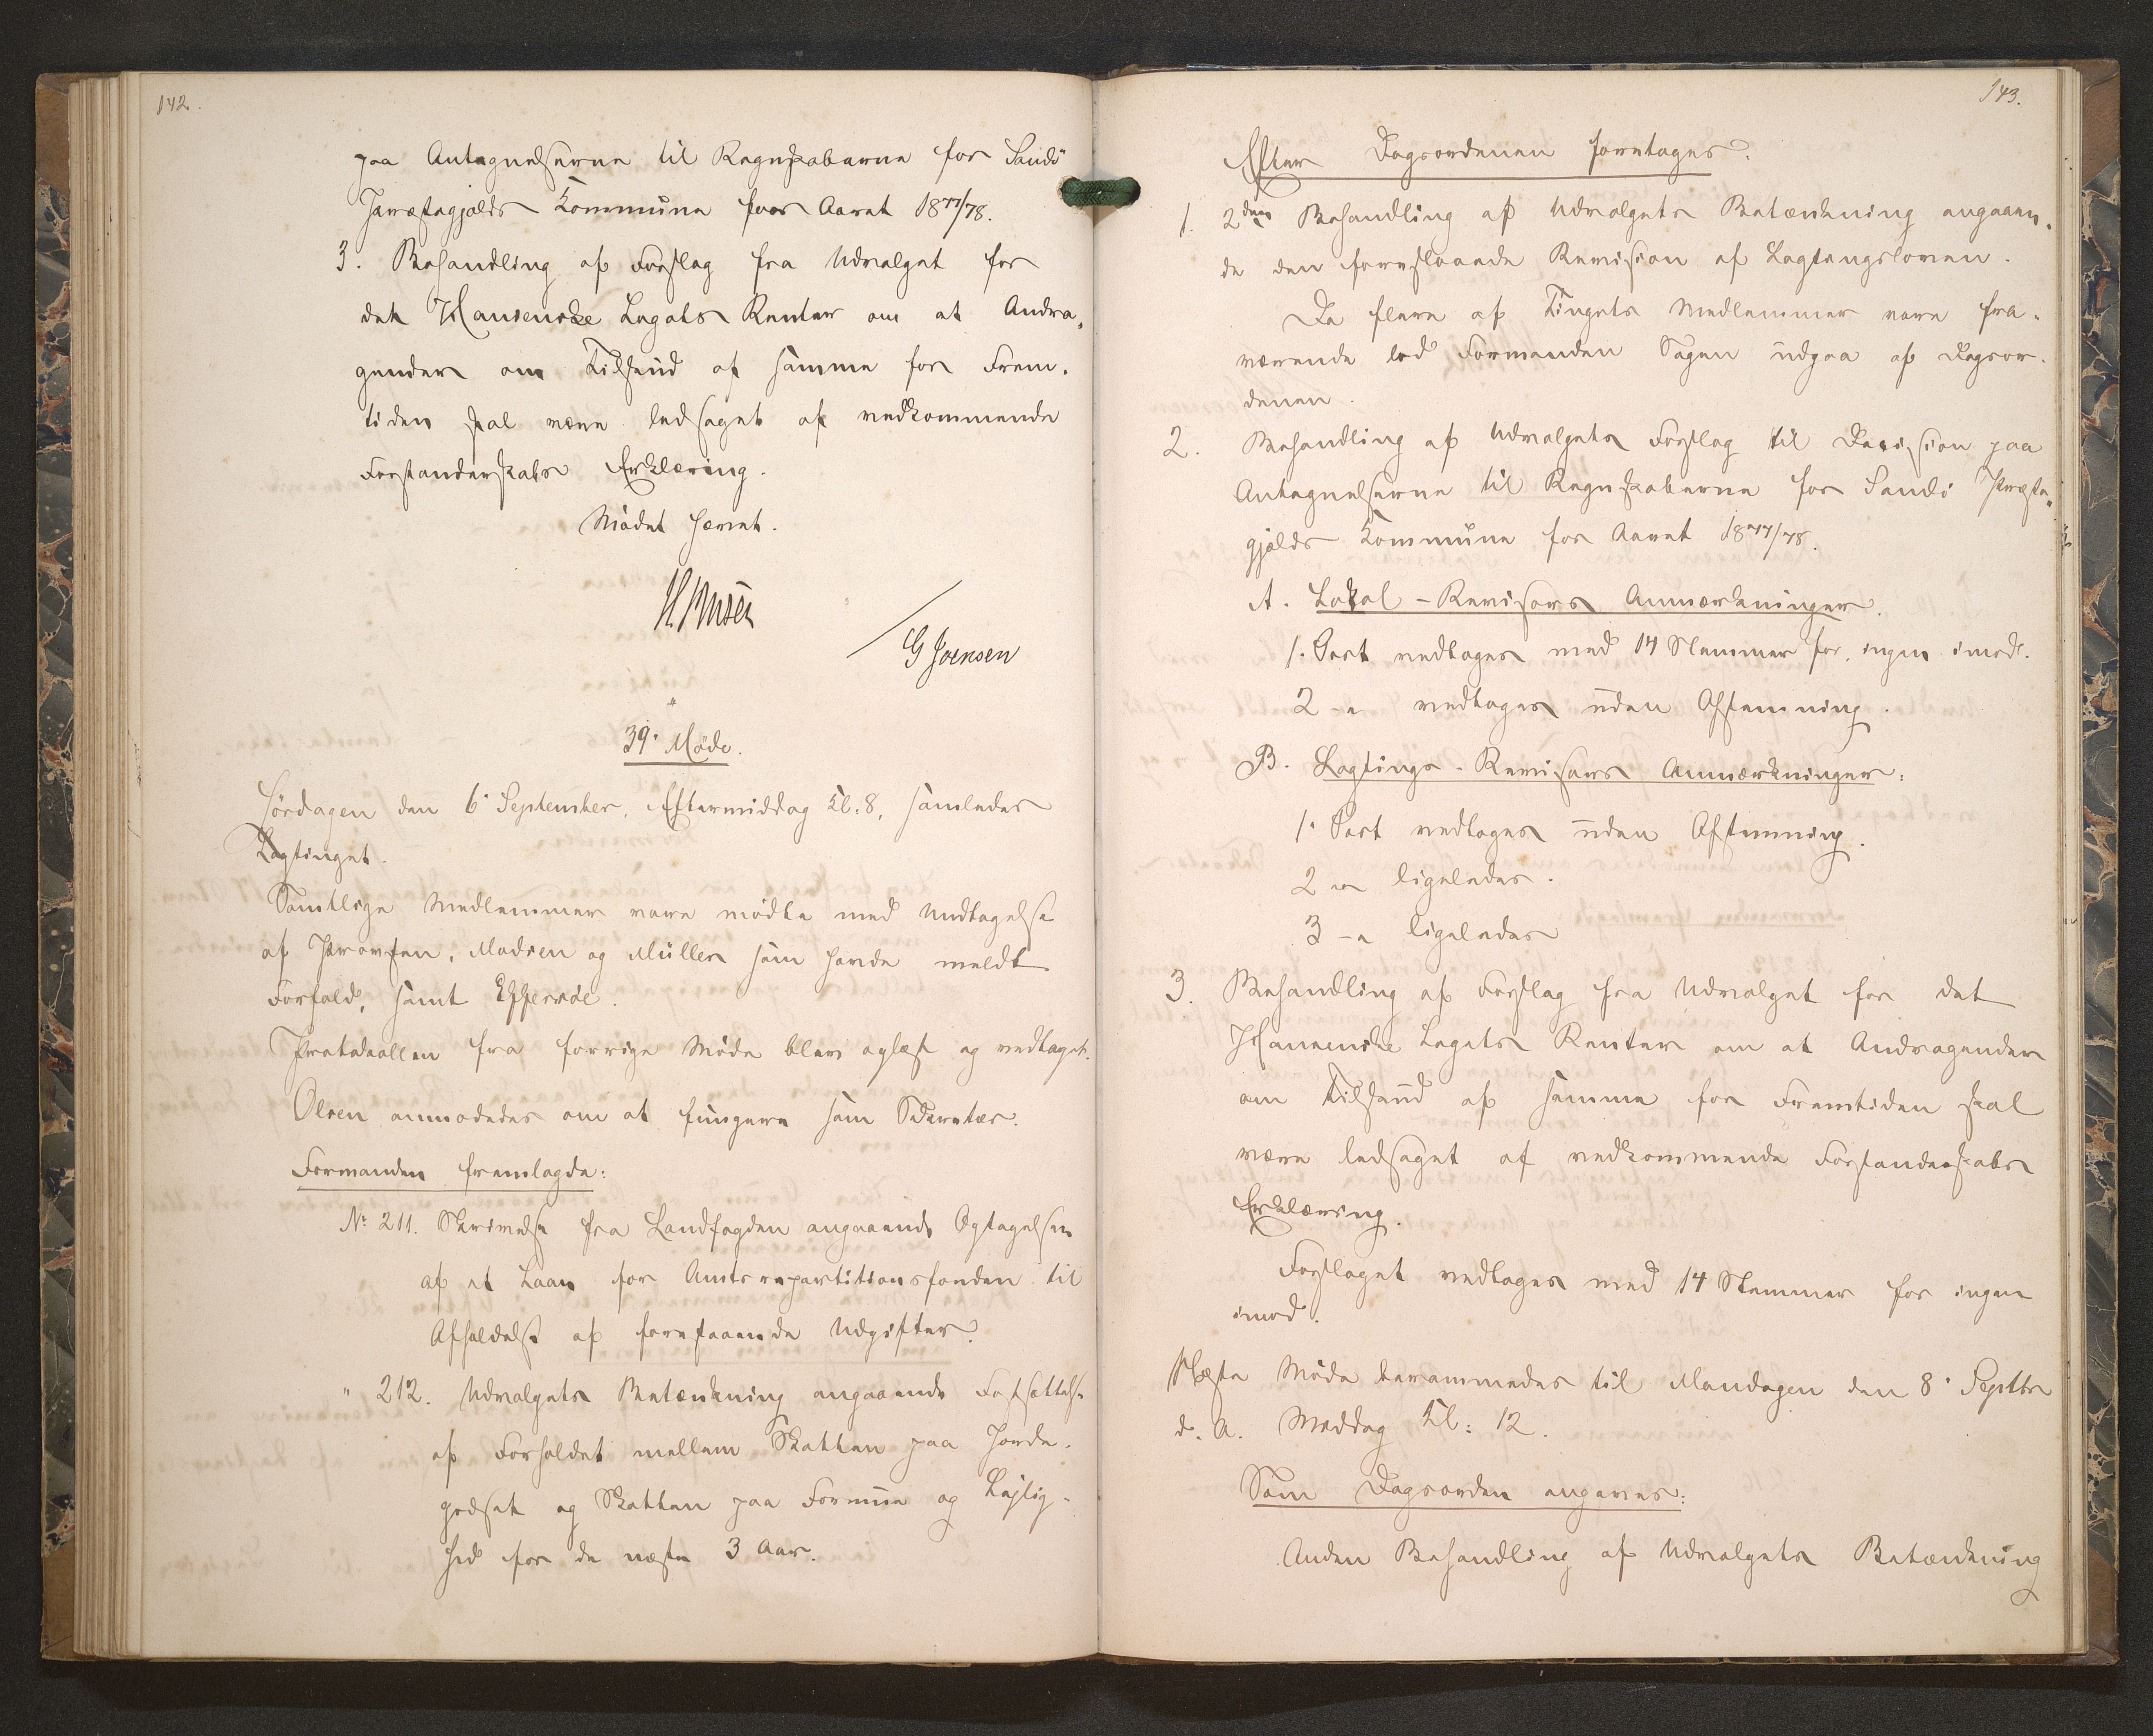 142.
paa Antegnelserne til Regnskaberne for Sandö
Præstegjælds Kommune for Aaret 18⁷⁷/78.
3. Behandling af Forslag fra Udvalget for
det Hansenske Legats Renter om at Andra-
gender om Tilskud af samme for Frem-
tiden skal være ledsaget af vedkommende
Forstanderskabs Erklæring.
Mödet hævet.
G Joensen
39' Møde.
Lördagen den 6' September, Eftermiddag Kl: 8, samledes
Lagtinget.
Samtlige Medlemmer vare mödte med Undtagelse
af Provsten, Madsen og Müller som havde meldt
Forfald, samt Effersöe.
Protokollen fra forrige Möde blev oplæst og vedtaget.
Olsen anmodedes om at fungere som Sekretær.
Formanden fremlagde:
No 211. Skrivelse fra Landfogden angaaende Optagelsen
af et Laan for Amtsrepartitionsfonden til
Afholdelse af forestaaende Udgifter.
" 212. Udvalgets Betænkning angaaende Fastsættelse
af Forholdet mellem Skatten paa Jorde-
godset og Skatten paa Formue og Lejlig-
hed for de næste 3 Aar.
143.
Efter Dagsordenen foretoges:
1. 2den Behandling af Udvalgets Betænkning angaaen-
de den foreslaaede Revision af Lagtingsloven.
Da flere af Tingets Medlemmer vare fra-
værende lod Formanden Sagen udgaa af Dagsor-
denen.
2. Behandling af Udvalgets Forslag til Decision paa
Antegnelserne til Regnskaberne for Sandö Præste-
gjælds Kommune for Aaret 18⁷⁷/78.
A. Lokal-Revisors Anmærkninger.
1. Post vedtoges med 14 Stemmer for, ingen imod.
2 - " vedtoges uden Afstemning.
B. Lagtings-Revisors Anmærkninger:
1' Post vedtoges uden Afstemning.
2 - " ligeledes.
3 - " ligeledes
3. Behandling af Forslag fra Udvalget for det
Hansenske Legats Renter om at Andragender
om Tilskud af samme for Fremtiden skal
være ledsaget af vedkommende Forstanderskabs
Erklæring.
Forslaget vedtoges med 14 Stemmer for ingen
imod.
Næste Möde berammedes til Mandagen den 8' Septbr
d. A. Middag Kl: 12.
Som Dagsorden angaves:
Anden Behandling af Udvalgets Betænkning